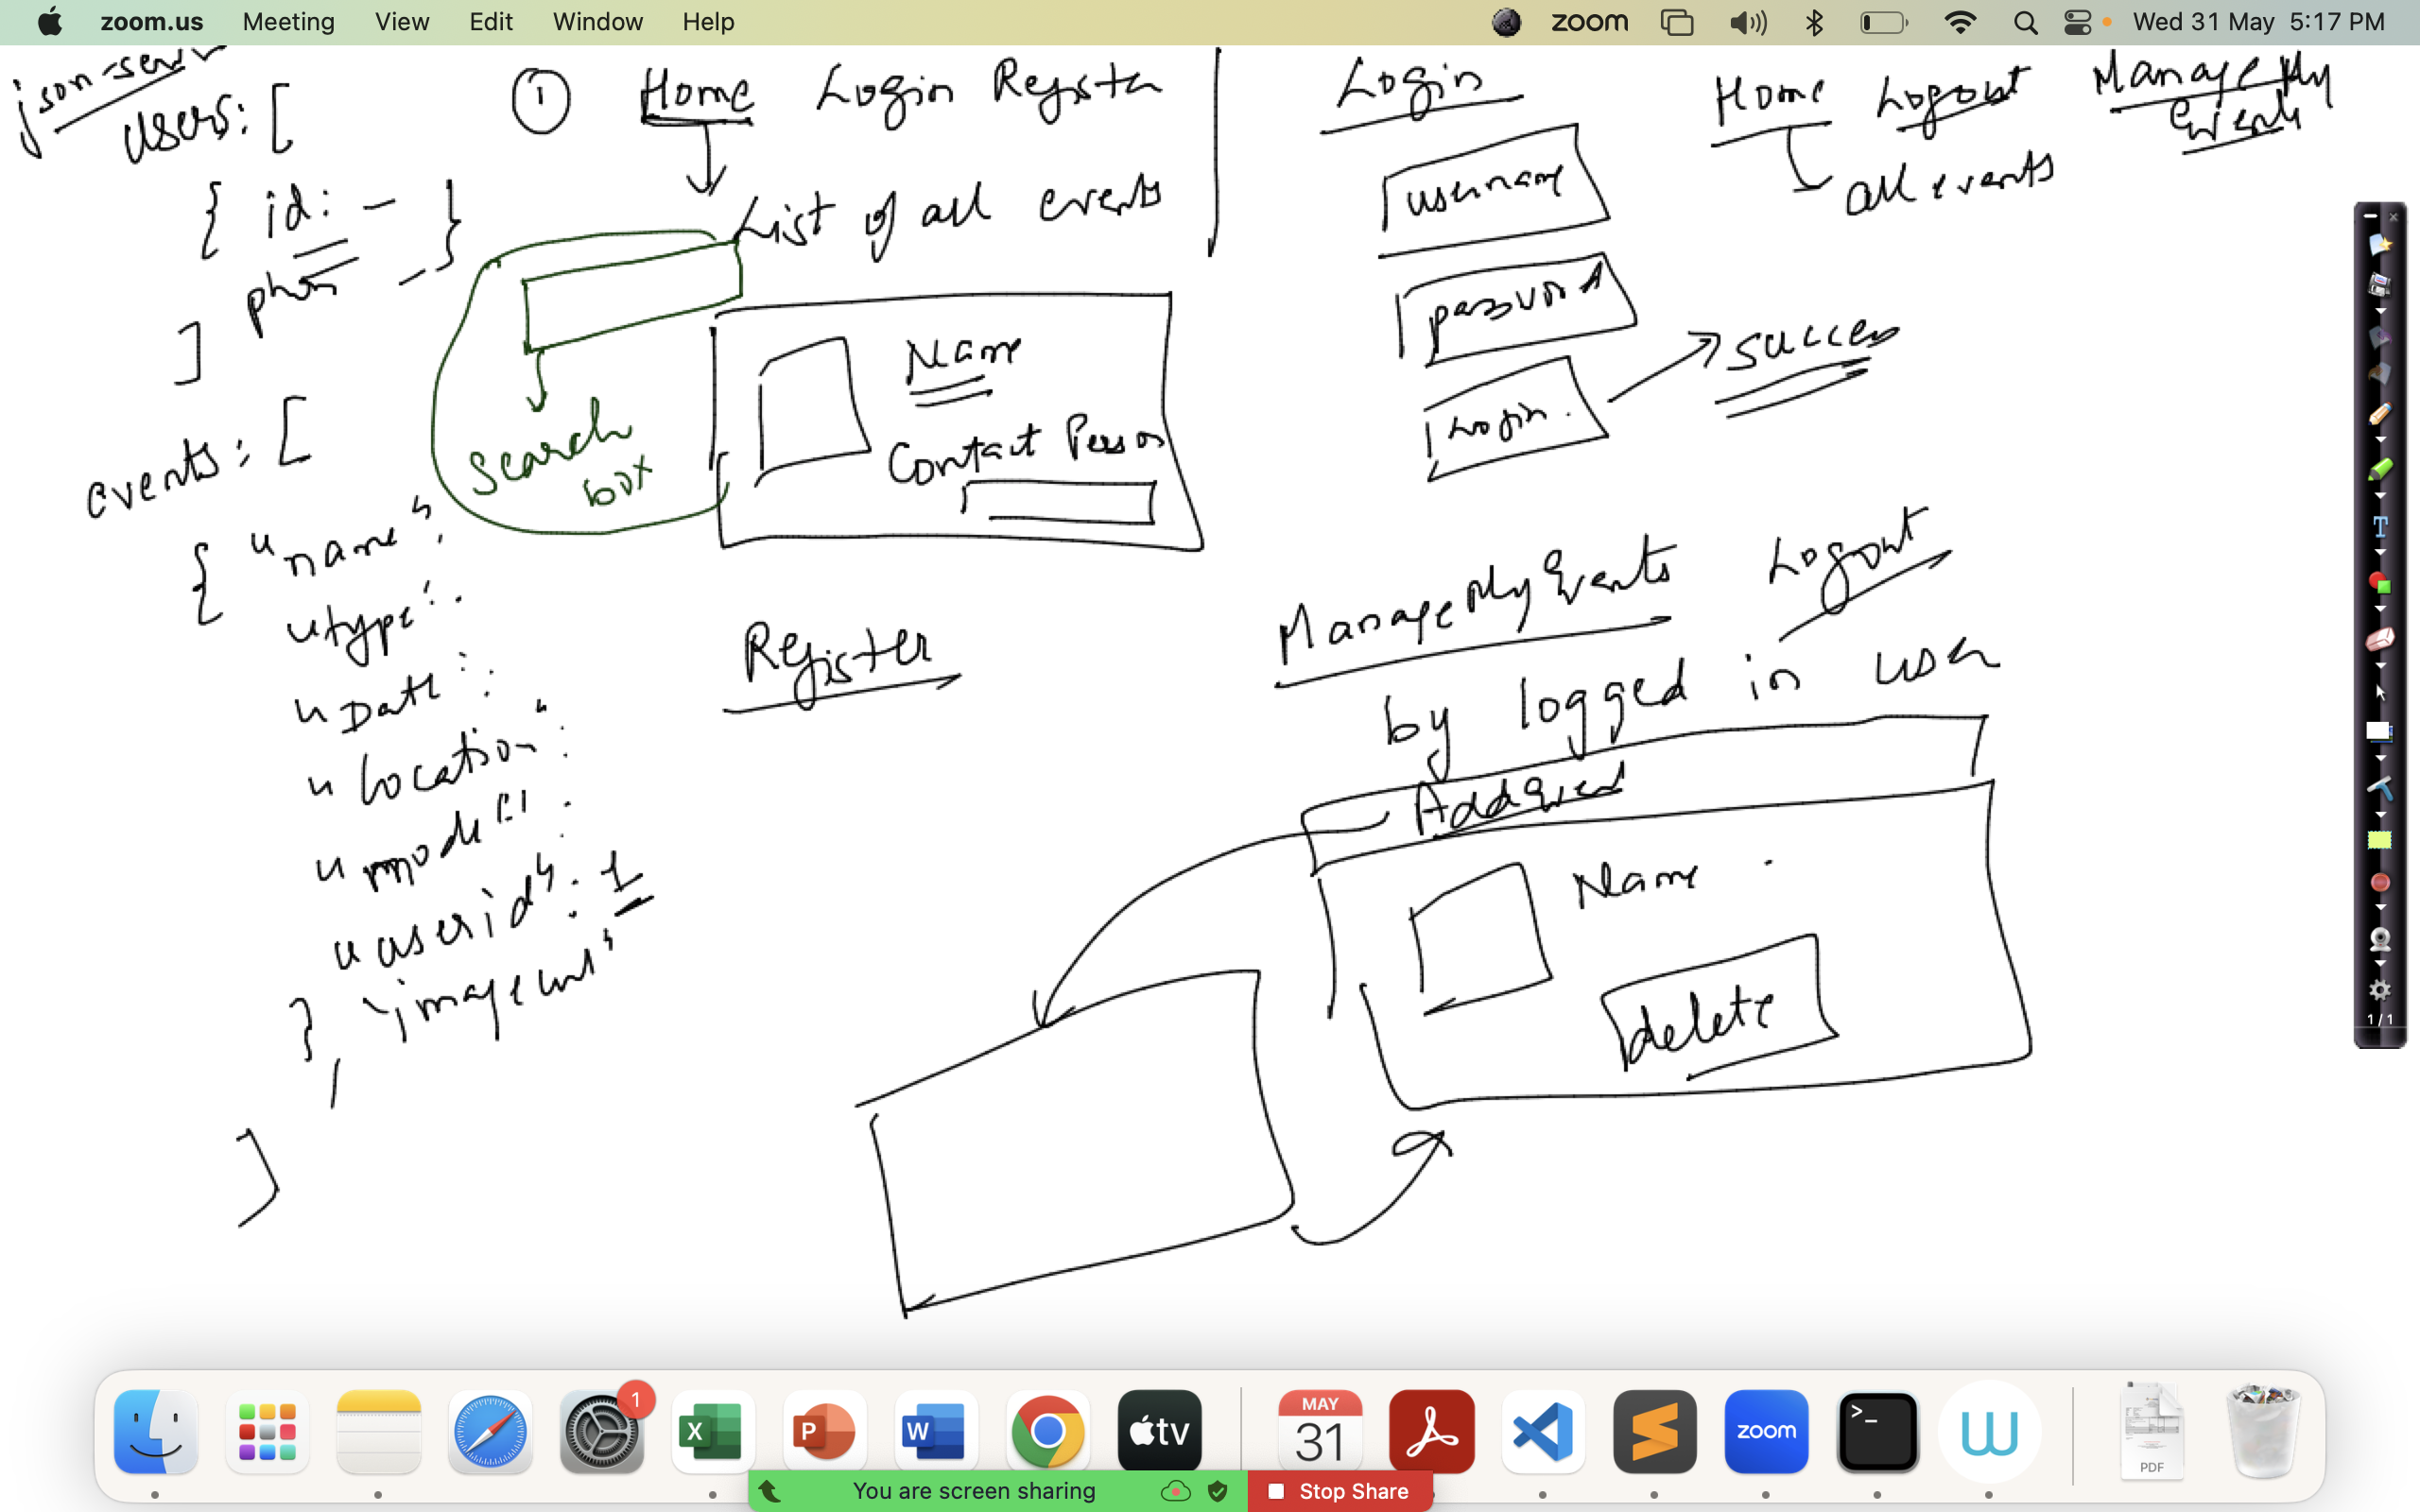 zoom.us Meeting View Edit Window Help zoom Wed 31 May 5:17 PM
json-serv
users: [
{ id: - }
phon -
]
events: [
{ "name":
"type":
"Date":
"location":
"mode":
"userid": 1
} , "imageurl"
]
① Home Login Register
List of all events
Search
box
Name
Contact Person
Register
Login
username
password
Login
Success
Home Logout Manage My
Events
all events
Manage My Events Logout
by logged in user
Add Event
Name
delete
1/1
1
X P W tv
MAY
31
zoom
>_
W
PDF
You are screen sharing Stop Share